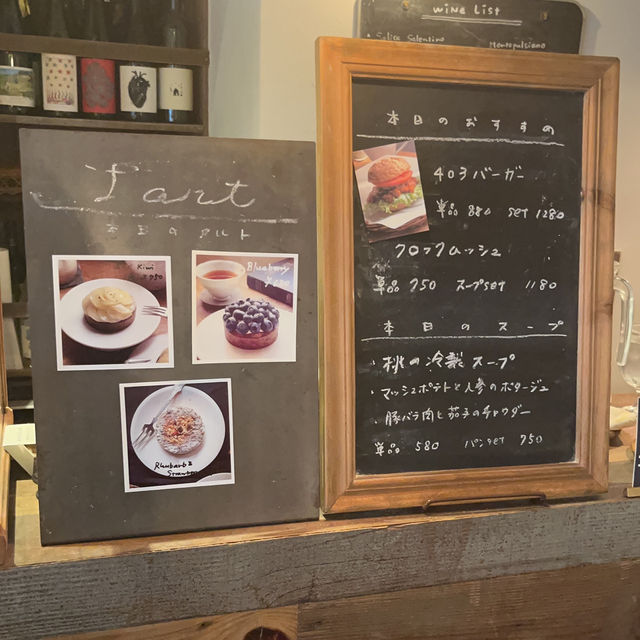 wine List
Salice Salentino Montepulciano
Tart
本日のタルト
Kiwi
Blueberry
Rhubarb &
本日のおすすめ
403バーガー
単品 880 set 1280
クロックムッシュ
単品 750 スープset 1180
本日のスープ
・桃の冷製スープ
・マッシュポテトと人参のポタージュ
・豚バラ肉と茄子のチャウダー
単品 580 パンset 750